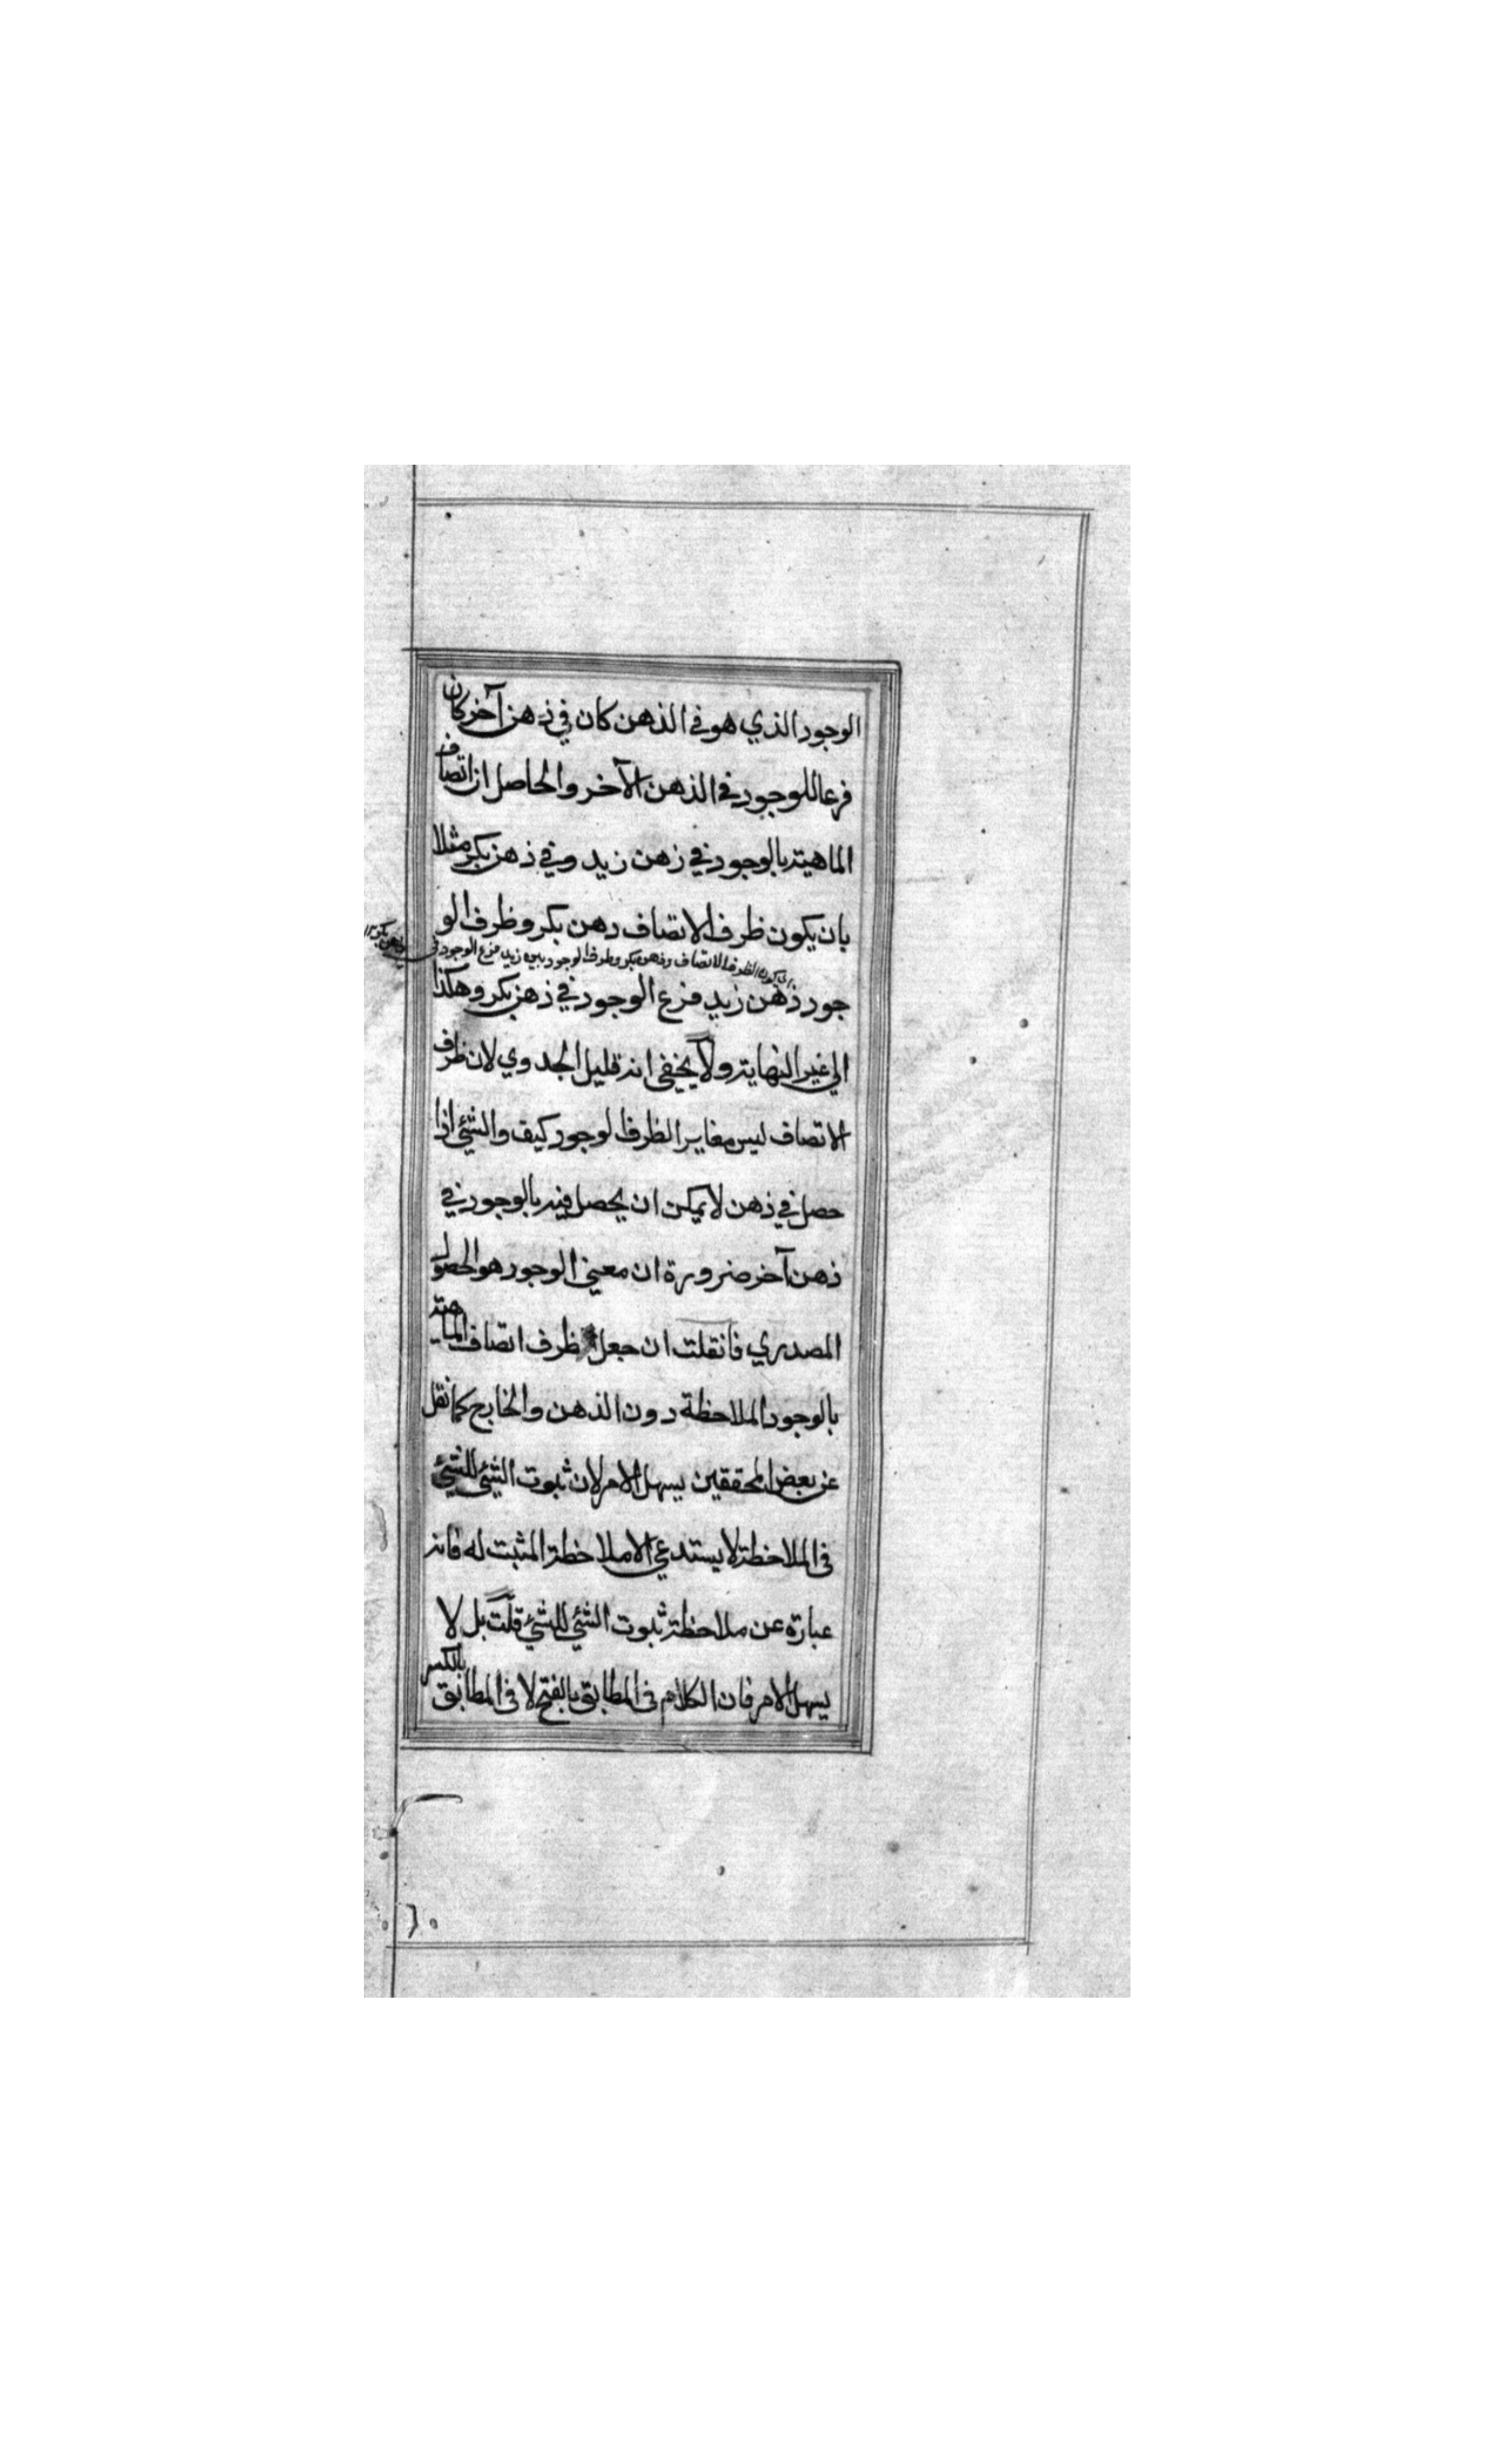 الوجود الذي هو في الذهن كان في ذهن آخر كان
فرعا للوجود في الذهن الآخر والحاصل ان اتصاف
الماهية بالوجود في ذهن زيد وفي ذهن بكر مثلا
بان يكون ظرف الاتصاف ذهن بكر وظرف الو
الظرف الاتصاف وذهن بكر وظرف الوجود زيد فرع الوجود في ذهن بكر
جود ذهن زيد فرع الوجود في ذهن بكر وهكذا
الي غير النهاية ولا يخفي انه قليل الجدوي لان ظرف
الاتصاف ليس مغايرا لظرف الوجود كيف والشئ اذا
حصل في ذهن لا يمكن ان يحصل فيه بالوجود في
ذهن آخر ضرورة ان معني الوجود هو الحصول
المصدري فان قلت ان جعل ظرف اتصاف الماهية
بالوجود الملاحظة دون الذهن والخارج كما نقل
عن بعض المحققين يسهل الامر لان ثبوت الشئ للشئ
في الملاحظة لا يستدعي الا ملاحظة المثبت له فانه
عبارة عن ملاحظة ثبوت الشئ للشئ قلت بل لا
يسهل الامر فان الكلام في المطابق بالفتح لا في المطابق بالكسر